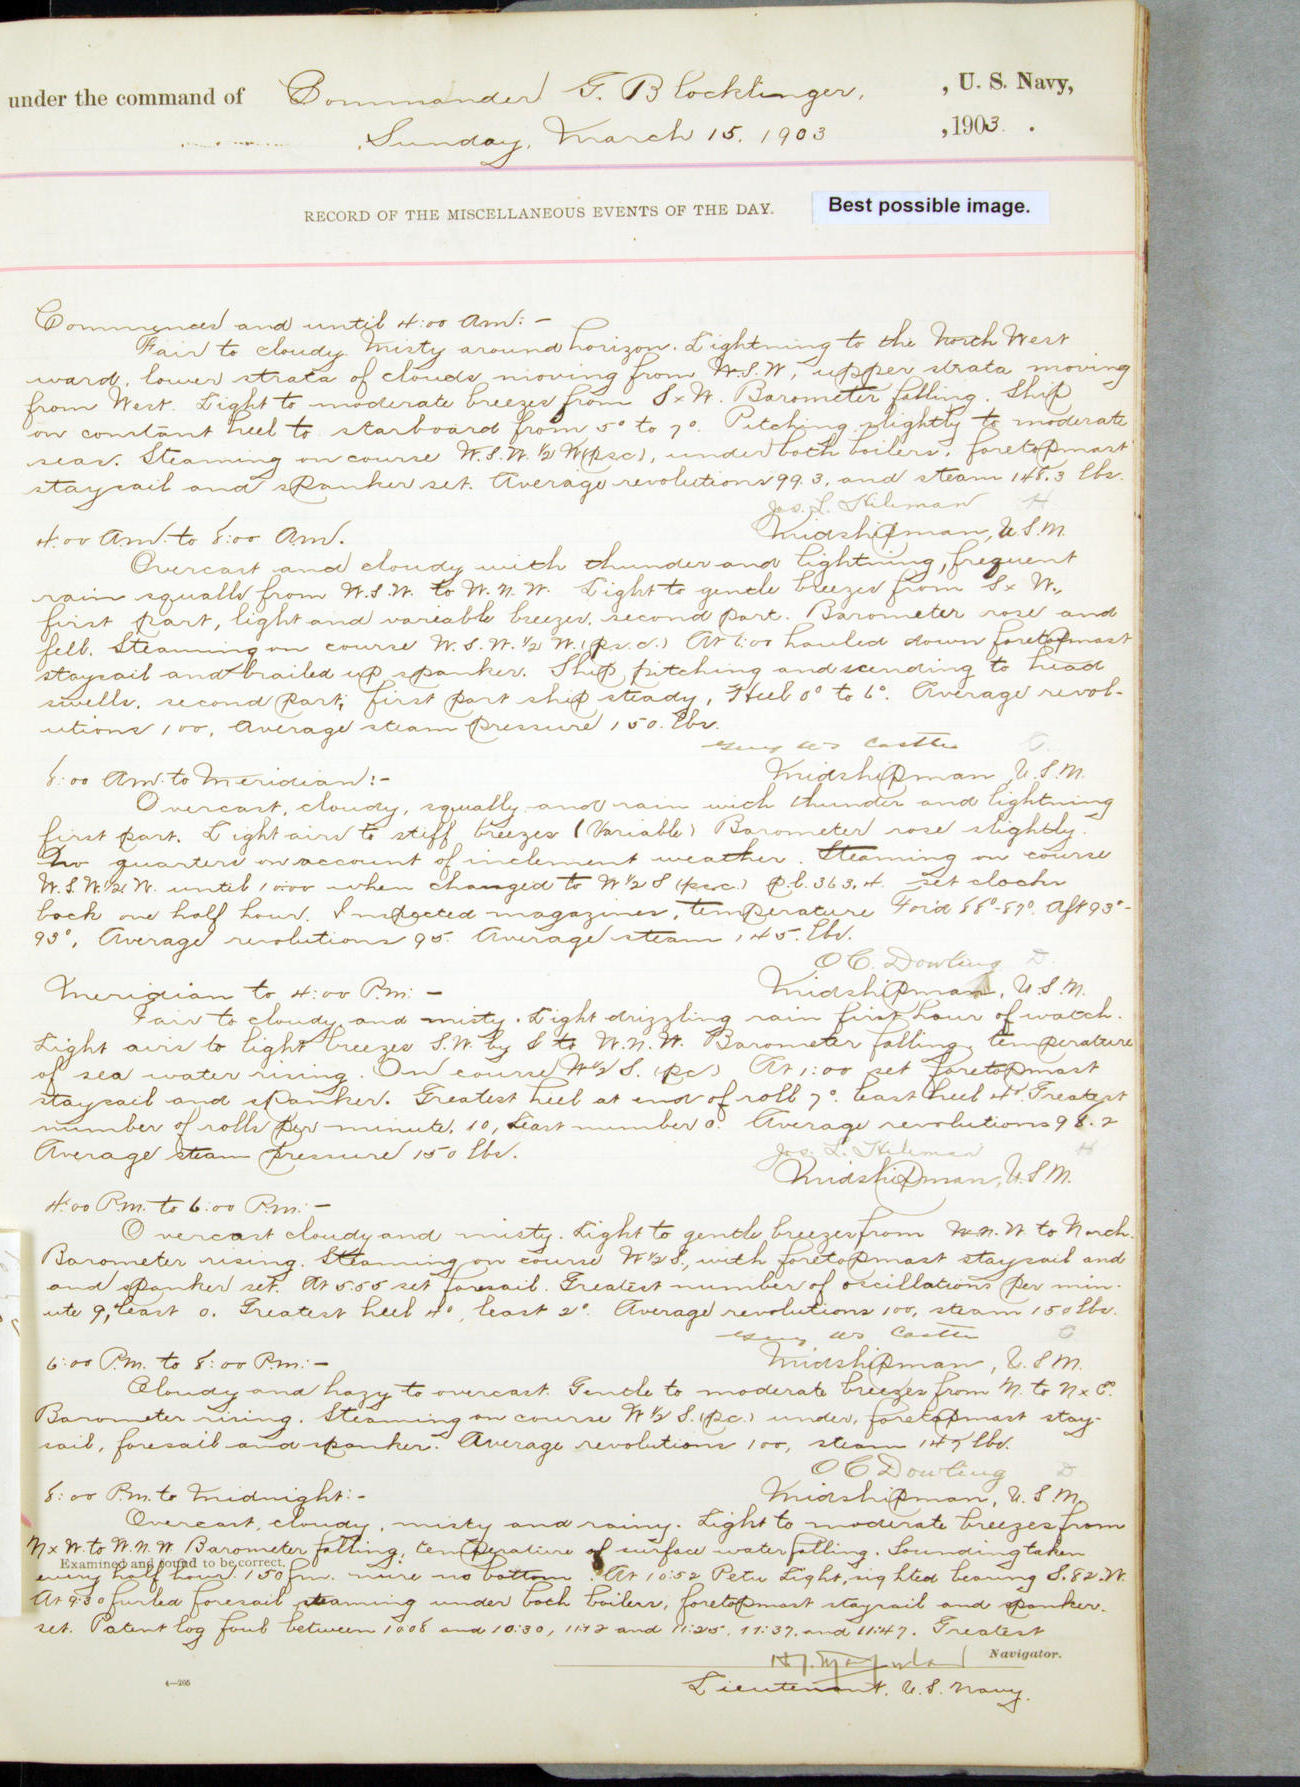 under the command of Commander G. Blocklinger, , U. S. Navy,
Sunday, March 15. 1903 , 1903 .
RECORD OF THE MISCELLANEOUS EVENTS OF THE DAY.
Best possible image.
Commences and until 4:00 Am:-
Fair to cloudy. Misty around horizon. Lightning to the North West
ward, lower strata of clouds moving from W.S.W., upper strata moving
from West. Light to moderate breezes from S x W. Barometer falling. Ship
on constant heel to starboard from 5° to 7°. Pitching slightly to moderate
seas. Steaming on course W.S.W. 1/2 W (psc), under both boilers, foretopmast
staysail and spanker set. Average revolutions 99.3, and steam 148.3 lbs.
Jos. L. Hileman H
4:00 A.m. to 8:00 Am. Midshipman, U.S.N.
Overcast and cloudy with thunder and lightning, frequent
rain squalls from W.S.W. to W.N.W. Light to gentle breezes from S x W.,
first part, light and variable breezes, second part. Barometer rose and
fell. Steaming on course W.S.W. 1/2 W. (p.s.c.) At 6:00 hauled down foretopmast
staysail and brailed up spanker. Ship pitching and scending to head
swells, second part; first part ship steady, Heel 0° to 6°. Average revol-
utions 100, average steam pressure 150. lbs.
Guy W S Castle C.
8:00 Am. to Meridian:- Midshipman U.S.N.
Overcast, cloudy, squally and rain with thunder and lightning
first part. Light airs to stiff breezes (Variable) Barometer rose slightly.
No quarters on account of inclement weather. Steaming on course
W.S.W. 1/2 W. until 10:00 when changed to W 1/2 S (psc.) p.l. 363.4. set clocks
back one half hour. Inspected magazines, temperature For'd 88°-87° Aft 93°-
93°, Average revolutions 95. Average steam 145. lbs.
O C. Dowling D.
Meridian to 4:00 P.m:- Midshipman, U.S.N.
Fair to cloudy and misty. Light drizzling rain first hour of watch.
Light airs to light breezes S.W. by S to W.N.W. Barometer falling, temperature
of sea water rising. On course W 1/2 S. (pc) At 1:00 set foretopmast
staysail and spanker. Greatest heel at end of roll 7°. least heel 4°. Greatest
number of rolls per minute, 10, Least number 0. Average revolutions 98.2
Average steam pressure 150 lbs. Jos. L. Hileman H
Midshipman, U.S.N.
4:00 P.m. to 6:00 P.m.:-
Overcast cloudy and misty. Light to gentle breezes from W.N.W. to North.
Barometer rising. Steaming on course W 1/2 S., with foretopmast staysail and
and spanker set. At 5:55 set foresail. Greatest number of oscillations per min-
ute 9, least 0. Greatest heel 4°, least 2°. Average revolutions 100, steam 150 lbs.
Guy W S Castle C
6:00 P.m. to 8:00 P.m.:- Midshipman, U.S.N.
Cloudy and hazy to overcast. Gentle to moderate breezes from N. to N x E.
Barometer rising. Steaming on course W 1/2 S. (p.c.) under, foretopmast stay-
sail, foresail and spanker. Average revolutions 100, steam 147 lbs.
O C Dowling D
8:00 P.m. to Midnight:- Midshipman, U.S.N.
Overcast, cloudy, misty and rainy. Light to moderate breezes from
N x W. to W.N.W. Barometer falling, temperature of surface water falling. Sounding taken
Examined and found to be correct.
every half hour. 150 fm. wire no bottom. At 10:52 Light, sighted bearing S.82.W.
At 9:30 furled foresail steaming under both boilers, foretopmast staysail and spanker.
set. Patent log foul between 1008 and 10:30, 11:12 and 11:25, 11:37, and 11:47. Greatest
Navigator.
Lieutenant, U.S. Navy.
4—205